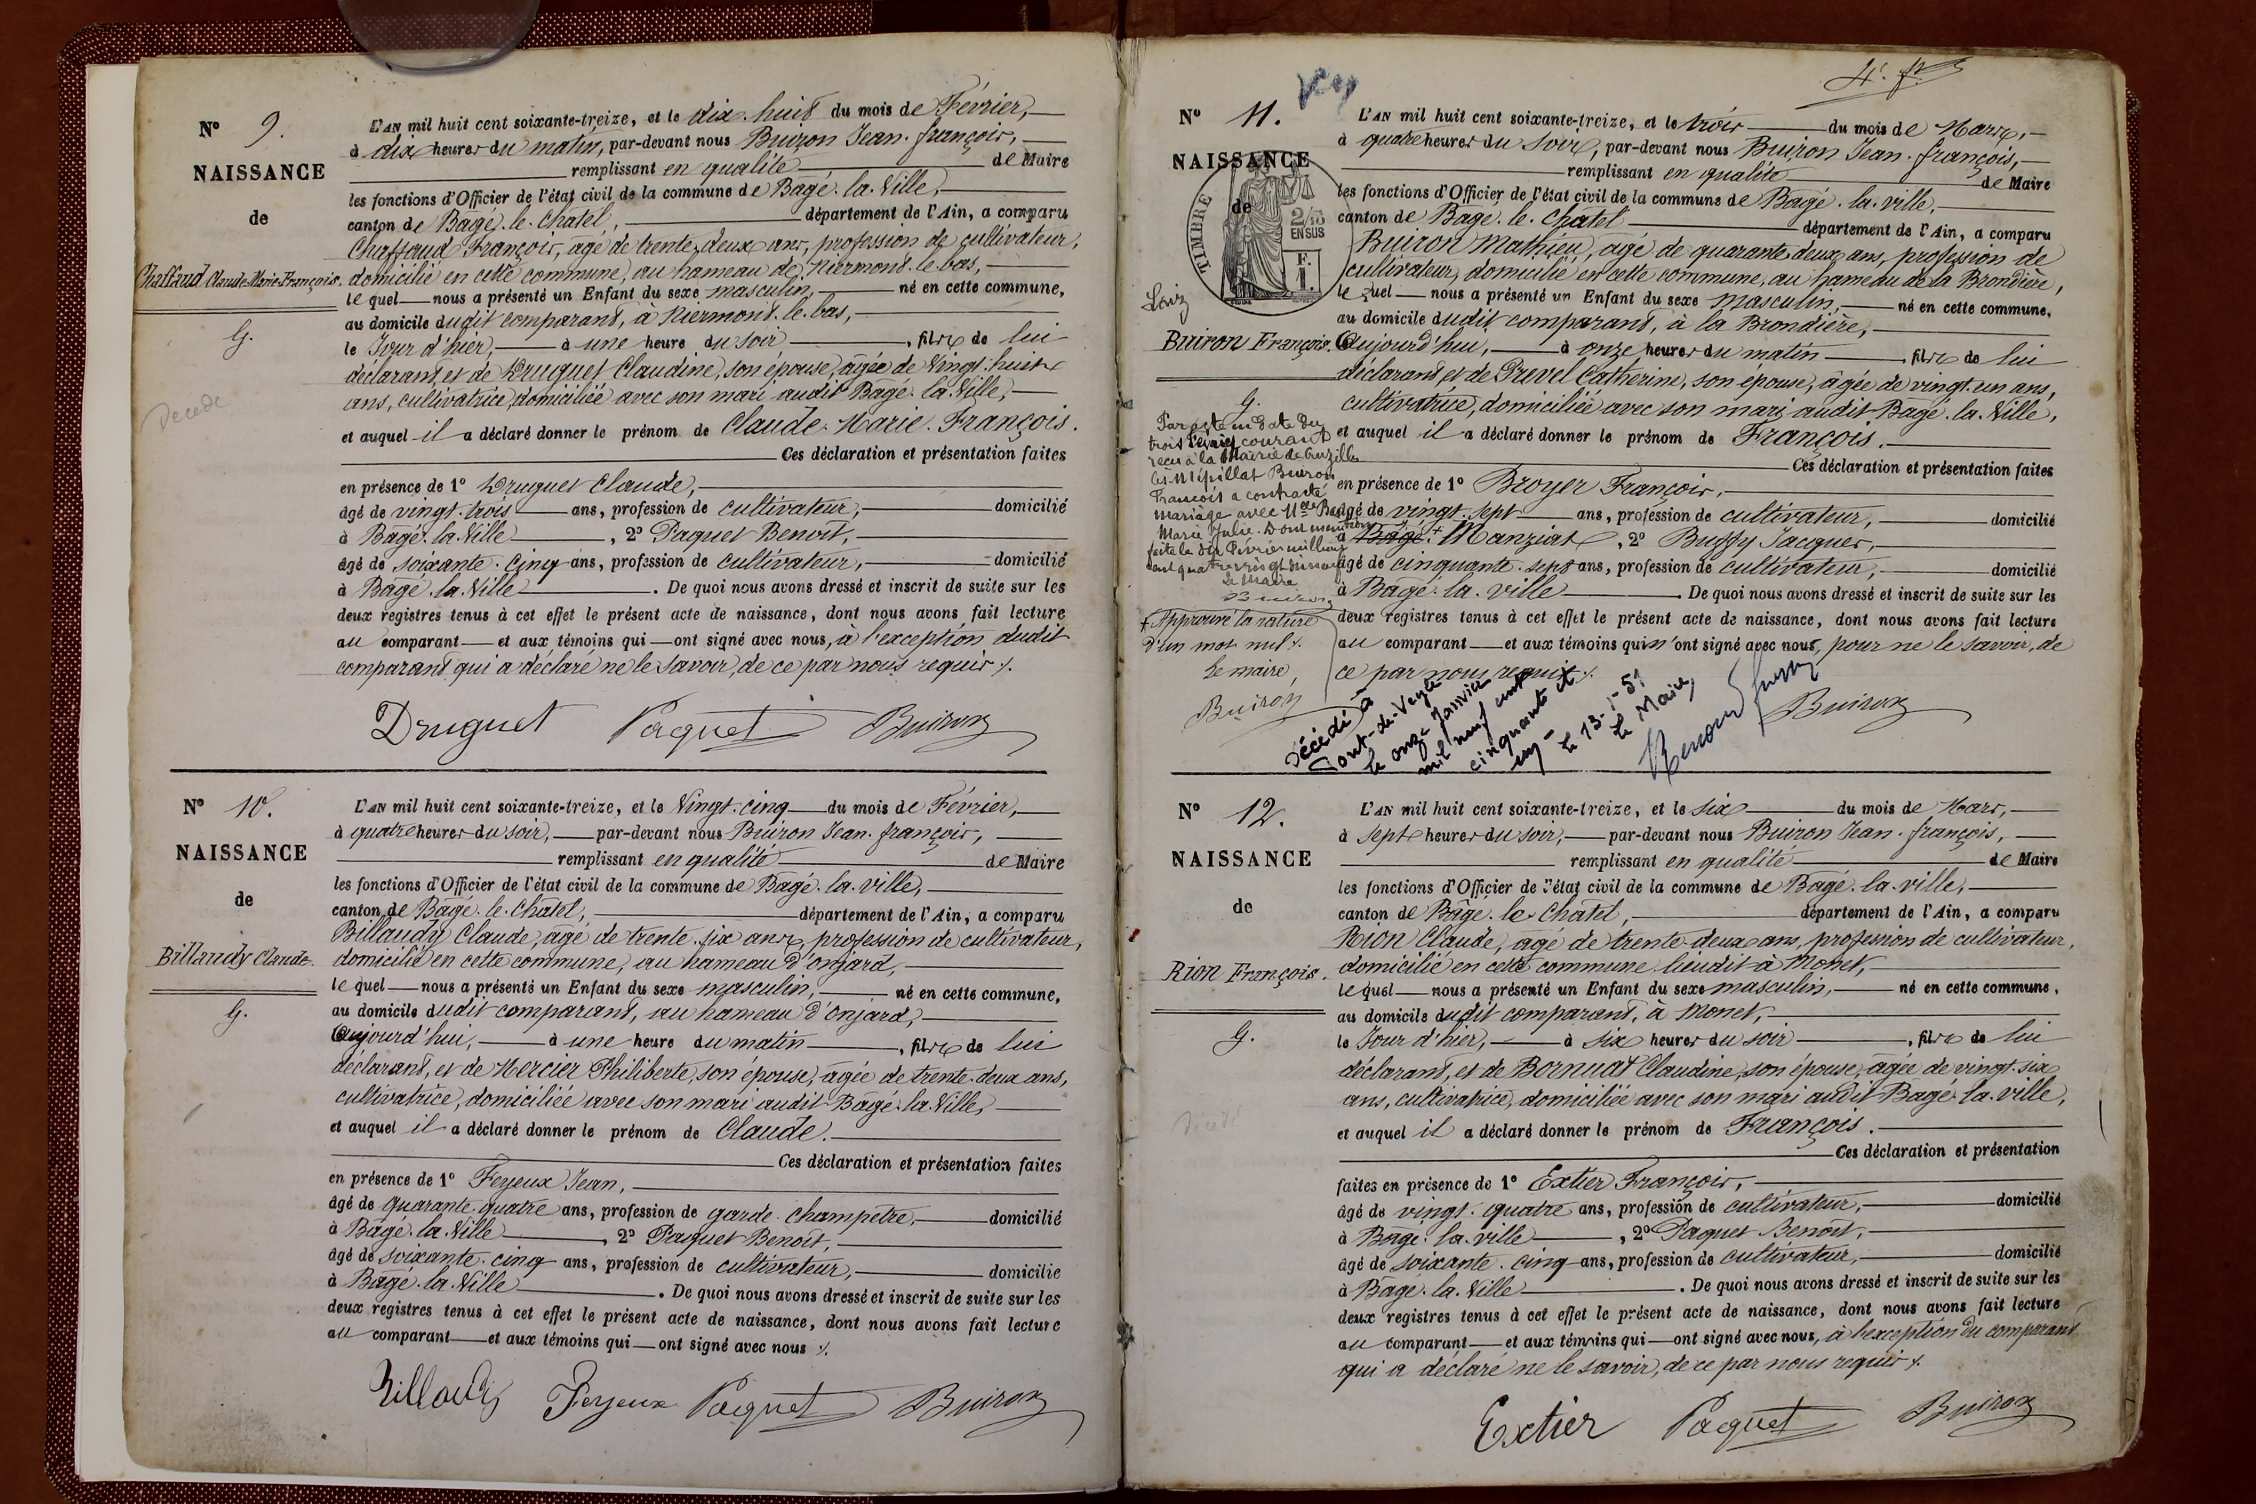 N° 9.
NAISSANCE
de
Chaffaud Claude-Marie-François.
G.
Décédé
L'AN mil huit cent soixante-treize, et le dix-huit du mois de Février,
à dix heures du matin, par-devant nous Buiron Jean-françois,
remplissant en qualité de Maire
les fonctions d'Officier de l'état civil de la commune de Bâgé-la-Ville,
canton de Bâgé-le-Châtel, département de l'Ain, a comparu
Chaffaud François, âgé de trente-deux ans, profession de cultivateur,
domicilié en cette commune, au hameau de Niermont-le-bas,
le quel nous a présenté un Enfant du sexe masculin, né en cette commune,
au domicile dudit comparant, à Niermont-le-bas,
le Jour d'hier, à une heure du soir, fils de lui
déclarant, et de Druguet Claudine, son épouse, âgée de Vingt-huit
ans, cultivatrice, domiciliée avec son mari audit Bâgé-la-Ville,
et auquel il a déclaré donner le prénom de Claude-Marie-François.
Ces déclaration et présentation faites
en présence de 1° Druguet Claude,
âgé de vingt-trois ans, profession de cultivateur, domicilié
à Bâgé-la-Ville, 2° Paquet Benoît,
âgé de soixante-cinq ans, profession de cultivateur, domicilié
à Bâgé-la-Ville. De quoi nous avons dressé et inscrit de suite sur les
deux registres tenus à cet effet le présent acte de naissance, dont nous avons fait lecture
au comparant et aux témoins qui ont signé avec nous, à l'exception dudit
comparant qui a déclaré ne le savoir, de ce par nous requis ./.
Druguet Paquet Buiron
N° 10.
NAISSANCE
de
Billaudy Claude.
G.
L'AN mil huit cent soixante-treize, et le Vingt-cinq du mois de Février,
à quatre heures du soir, par-devant nous Buiron Jean-françois,
remplissant en qualité de Maire
les fonctions d'Officier de l'état civil de la commune de Bâgé-la-ville,
canton de Bâgé-le-Châtel, département de l'Ain, a comparu
Billaudy Claude, âgé de trente-six ans, profession de cultivateur,
domicilié en cette commune, au hameau d'Onjard,
le quel nous a présenté un Enfant du sexe masculin, né en cette commune,
au domicile dudit comparant, au hameau d'Onjard,
Aujourd'hui, à une heure du matin, fils de lui
déclarant, et de Mercier Philiberte, son épouse, âgée de trente-deux ans,
cultivatrice, domiciliée avec son mari audit Bâgé-la-Ville,
et auquel il a déclaré donner le prénom de Claude.
Ces déclaration et présentation faites
en présence de 1° Feyeux Jean,
âgé de quarante-quatre ans, profession de garde-champêtre, domicilié
à Bâgé-la-Ville, 2° Paquet Benoît,
âgé de soixante-cinq ans, profession de cultivateur, domicilié
à Bâgé-la-Ville. De quoi nous avons dressé et inscrit de suite sur les
deux registres tenus à cet effet le présent acte de naissance, dont nous avons fait lecture
au comparant et aux témoins qui ont signé avec nous ./.
Billaudy Feyeux Paquet Buiron
4e. ft
N° 11.
NAISSANCE
de
TIMBRE
2/10
EN SUS
F.
1.
Louis
Buiron François.
G.
Par acte en date du
trois Février courant
reçu à la Mairie de Cruzilles
les-Mépillat Buiron
François a contracté
mariage avec Mlle
Marie Julie. Dont mention
faite le dix Février mil huit
cent quatre vingt
Le Maire
Buiron
+ Approuvé la rature
d'un mot nul ./.
Le maire,
Buiron
L'AN mil huit cent soixante-treize, et le trois du mois de Mars,
à quatre heures du soir, par-devant nous Buiron Jean-françois,
remplissant en qualité de Maire
les fonctions d'Officier de l'état civil de la commune de Bâgé-la-ville,
canton de Bâgé-le-Châtel département de l'Ain, a comparu
Buiron Mathieu, âgé de quarante-deux ans, profession de
cultivateur, domicilié en cette commune, au hameau de la Brondière,
le quel nous a présenté un Enfant du sexe masculin, né en cette commune,
au domicile dudit comparant, à la Brondière,
Aujourd'hui, à onze heures du matin, fils de lui
déclarant, et de Prevel Catherine, son épouse, âgée de vingt-un ans,
cultivatrice, domiciliée avec son mari audit Bâgé-la-Ville,
et auquel il a déclaré donner le prénom de François.
Ces déclaration et présentation faites
en présence de 1° Broyer François,
âgé de vingt-sept ans, profession de cultivateur, domicilié
à Bâgé + Manziat, 2° Buffy Jacques,
âgé de cinquante-sept ans, profession de cultivateur, domicilié
à Bâgé-la-ville. De quoi nous avons dressé et inscrit de suite sur les
deux registres tenus à cet effet le présent acte de naissance, dont nous avons fait lecture
au comparant et aux témoins qui n'ont signé avec nous, pour ne le savoir, de
ce par nous requis ./.
Buiron
Décédé à
Pont-de-Veyle
le onze Janvier
mil neuf cent
cinquante et
un - le 13-1-51
Le Maire,
N° 12.
NAISSANCE
de
Rion François.
G.
Décédé
L'AN mil huit cent soixante-treize, et le six du mois de Mars,
à sept heures du soir, par-devant nous Buiron Jean-françois,
remplissant en qualité de Maire
les fonctions d'Officier de l'état civil de la commune de Bâgé-la-ville,
canton de Bâgé-le-Châtel, département de l'Ain, a comparu
Rion Claude, âgé de trente-deux ans, profession de cultivateur,
domicilié en cette commune lieudit à Monet,
le quel nous a présenté un Enfant du sexe masculin, né en cette commune,
au domicile dudit comparant, à Monet,
le Jour d'hier, à six heures du soir, fils de lui
déclarant, et de Bornuat Claudine, son épouse, âgée de vingt-six
ans, cultivatrice, domiciliée avec son mari audit Bâgé-la-ville,
et auquel il a déclaré donner le prénom de François.
Ces déclaration et présentation
faites en présence de 1° Extier François,
âgé de vingt-quatre ans, profession de cultivateur, domicilié
à Bâgé-la-ville, 2° Paquet Benoît,
âgé de soixante-cinq ans, profession de cultivateur, domicilié
à Bâgé-la-Ville. De quoi nous avons dressé et inscrit de suite sur les
deux registres tenus à cet effet le présent acte de naissance, dont nous avons fait lecture
au comparant et aux témoins qui ont signé avec nous, à l'exception du comparant
qui a déclaré ne le savoir, de ce par nous requis ./.
Extier Paquet Buiron